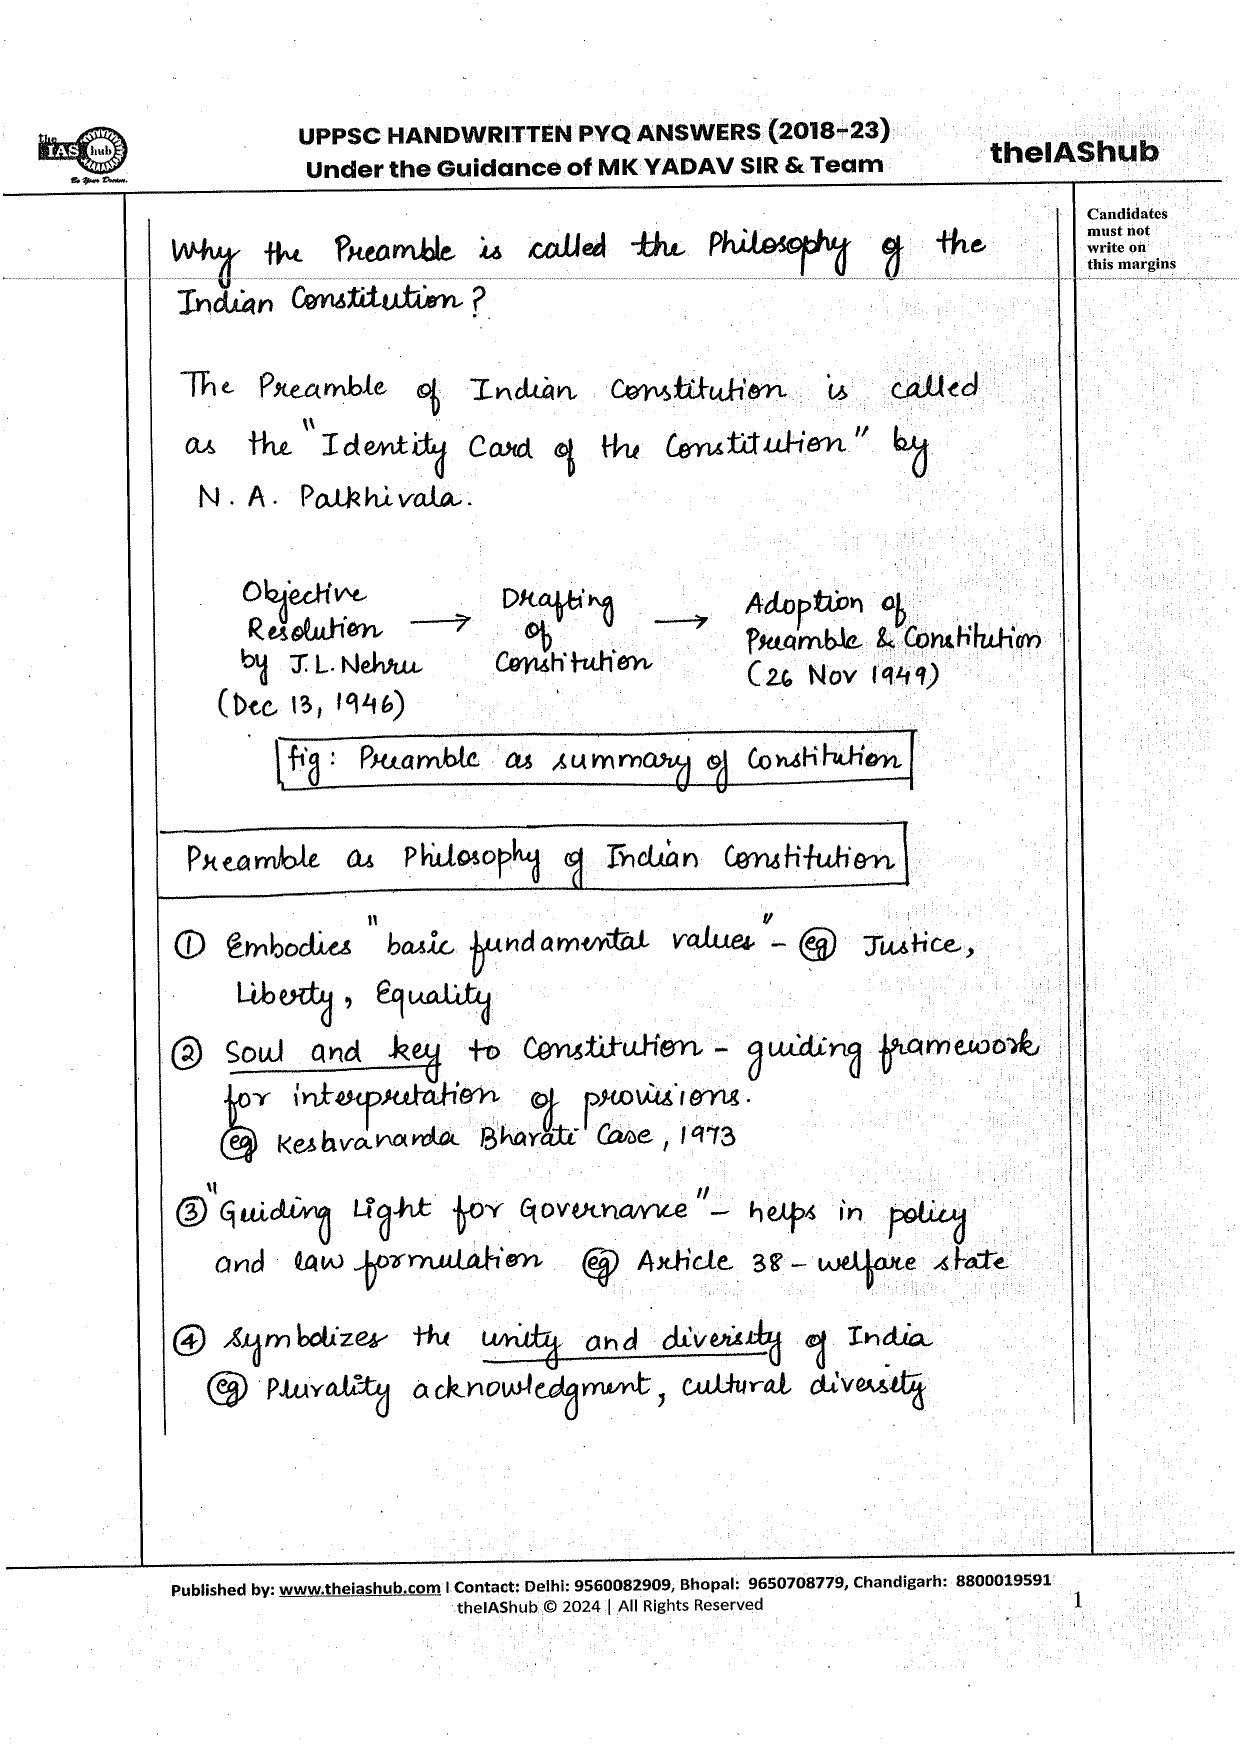 the IAS hub
Be Your Dream.
UPPSC HANDWRITTEN PYQ ANSWERS (2018-23)
Under the Guidance of MK YADAV SIR & Team
theIAShub
Candidates
must not
write on
this margins
Why the Preamble is called the Philosophy of the
Indian Constitution?
The Preamble of Indian Constitution is called
as the "Identity Card of the Constitution" by
N. A. Palkhivala.
Objective
Resolution
by J.L. Nehru
(Dec 13, 1946)
→
Drafting
of
Constitution
→
Adoption of
Preamble & Constitution
(26 Nov 1949)
fig: Preamble as summary of Constitution
Preamble as Philosophy of Indian Constitution
① Embodies "basic fundamental values" - eg Justice,
Liberty, Equality
② Soul and key to Constitution - guiding framework
for interpretation of provisions.
eg Keshvananda Bharati Case, 1973
③ "Guiding Light for Governance" - helps in policy
and law formulation eg Article 38 - welfare state
④ Symbolizes the unity and diversity of India
eg Plurality acknowledgment, cultural diversity
Published by: www.theiashub.com I Contact: Delhi: 9560082909, Bhopal: 9650708779, Chandigarh: 8800019591
theIAShub © 2024 | All Rights Reserved
1